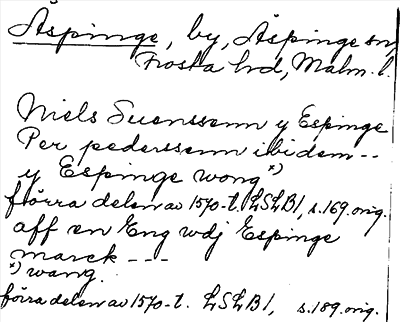 Äspinge, by, Äspinge sn,
Frosta hd, Malm. l.
Niels Suenssenn y Espinge
Per pederssenn ibidem --
y Espinge wong x)
förra delen av 1570-t. LSLB1, s. 169. orig.
aff en Eng wdj Espinge
marck ---
x) wang.
förra delen av 1570-t. LSLB1, s. 189. orig.